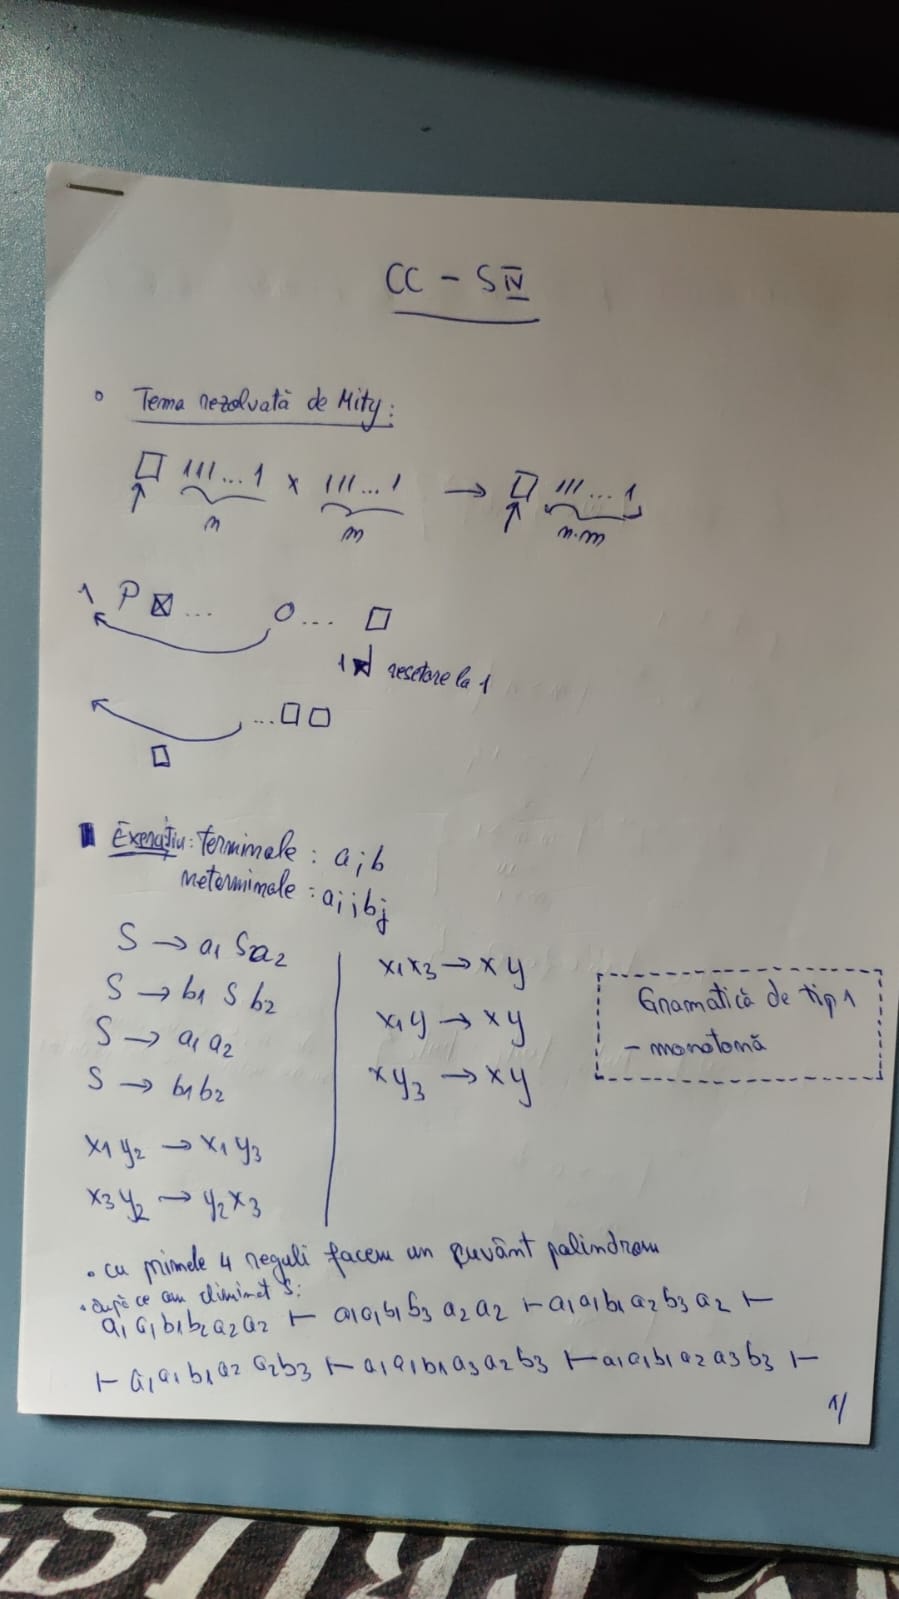 CC - S IV
Tema rezolvată de Mity:
□ 111...1 x 111...1 → □ 111...1
n m n·m
1 P ☒ ... 0 ... □
resetare la 1
...□□
□
Exercițiu: terminale : a, b
neterminale : ai, bj
S → a1 S a2
S → b1 S b2
S → a1 a2
S → b1 b2
x1 y2 → x1 y3
x3 y2 → y2 x3
x1 x3 → x y
x1 y → x y
x y3 → x y
Gramatică de tip 1
- monotonă
• cu primele 4 reguli facem un cuvânt palindrom
• după ce am eliminat S:
a1 a1 b1 b2 a2 a2 ⊢ a1 a1 b1 b3 a2 a2 ⊢ a1 a1 b1 a2 b3 a2 ⊢
⊢ a1 a1 b1 a2 a2 b3 ⊢ a1 a1 b1 a3 a2 b3 ⊢ a1 a1 b1 a2 a3 b3 ⊢
1/
ESTR CRUIS